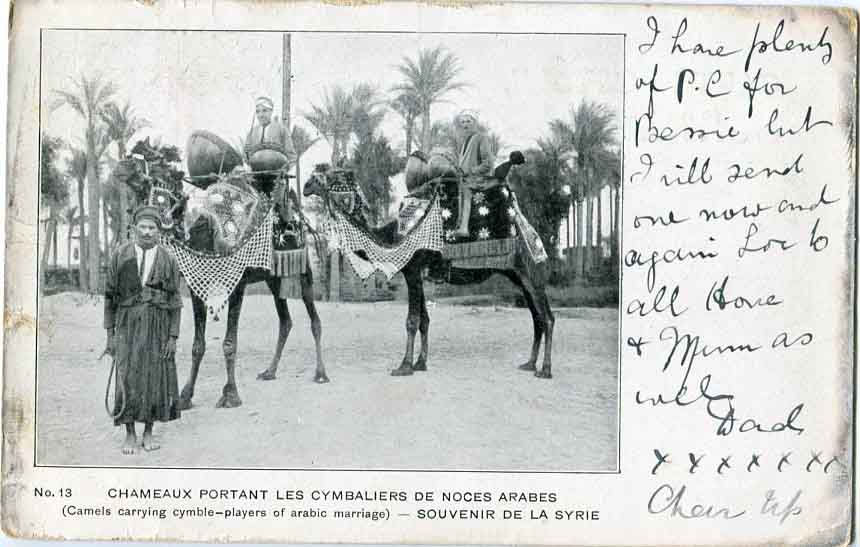 I have plenty
of P.C for
Bessie but
I will send
one now and
again Love to
all Home
+ Mum as
well
Dad
x x x x x x x
Chear Up
No. 13 CHAMEAUX PORTANT LES CYMBALIERS DE NOCES ARABES
(Camels carrying cymble-players of arabic marriage) — SOUVENIR DE LA SYRIE